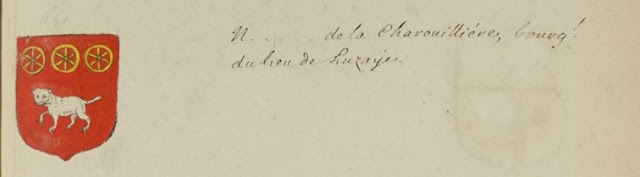 N. ........ de la Charouilliére, bourg.ˢ
du lieu de Luzaÿe.